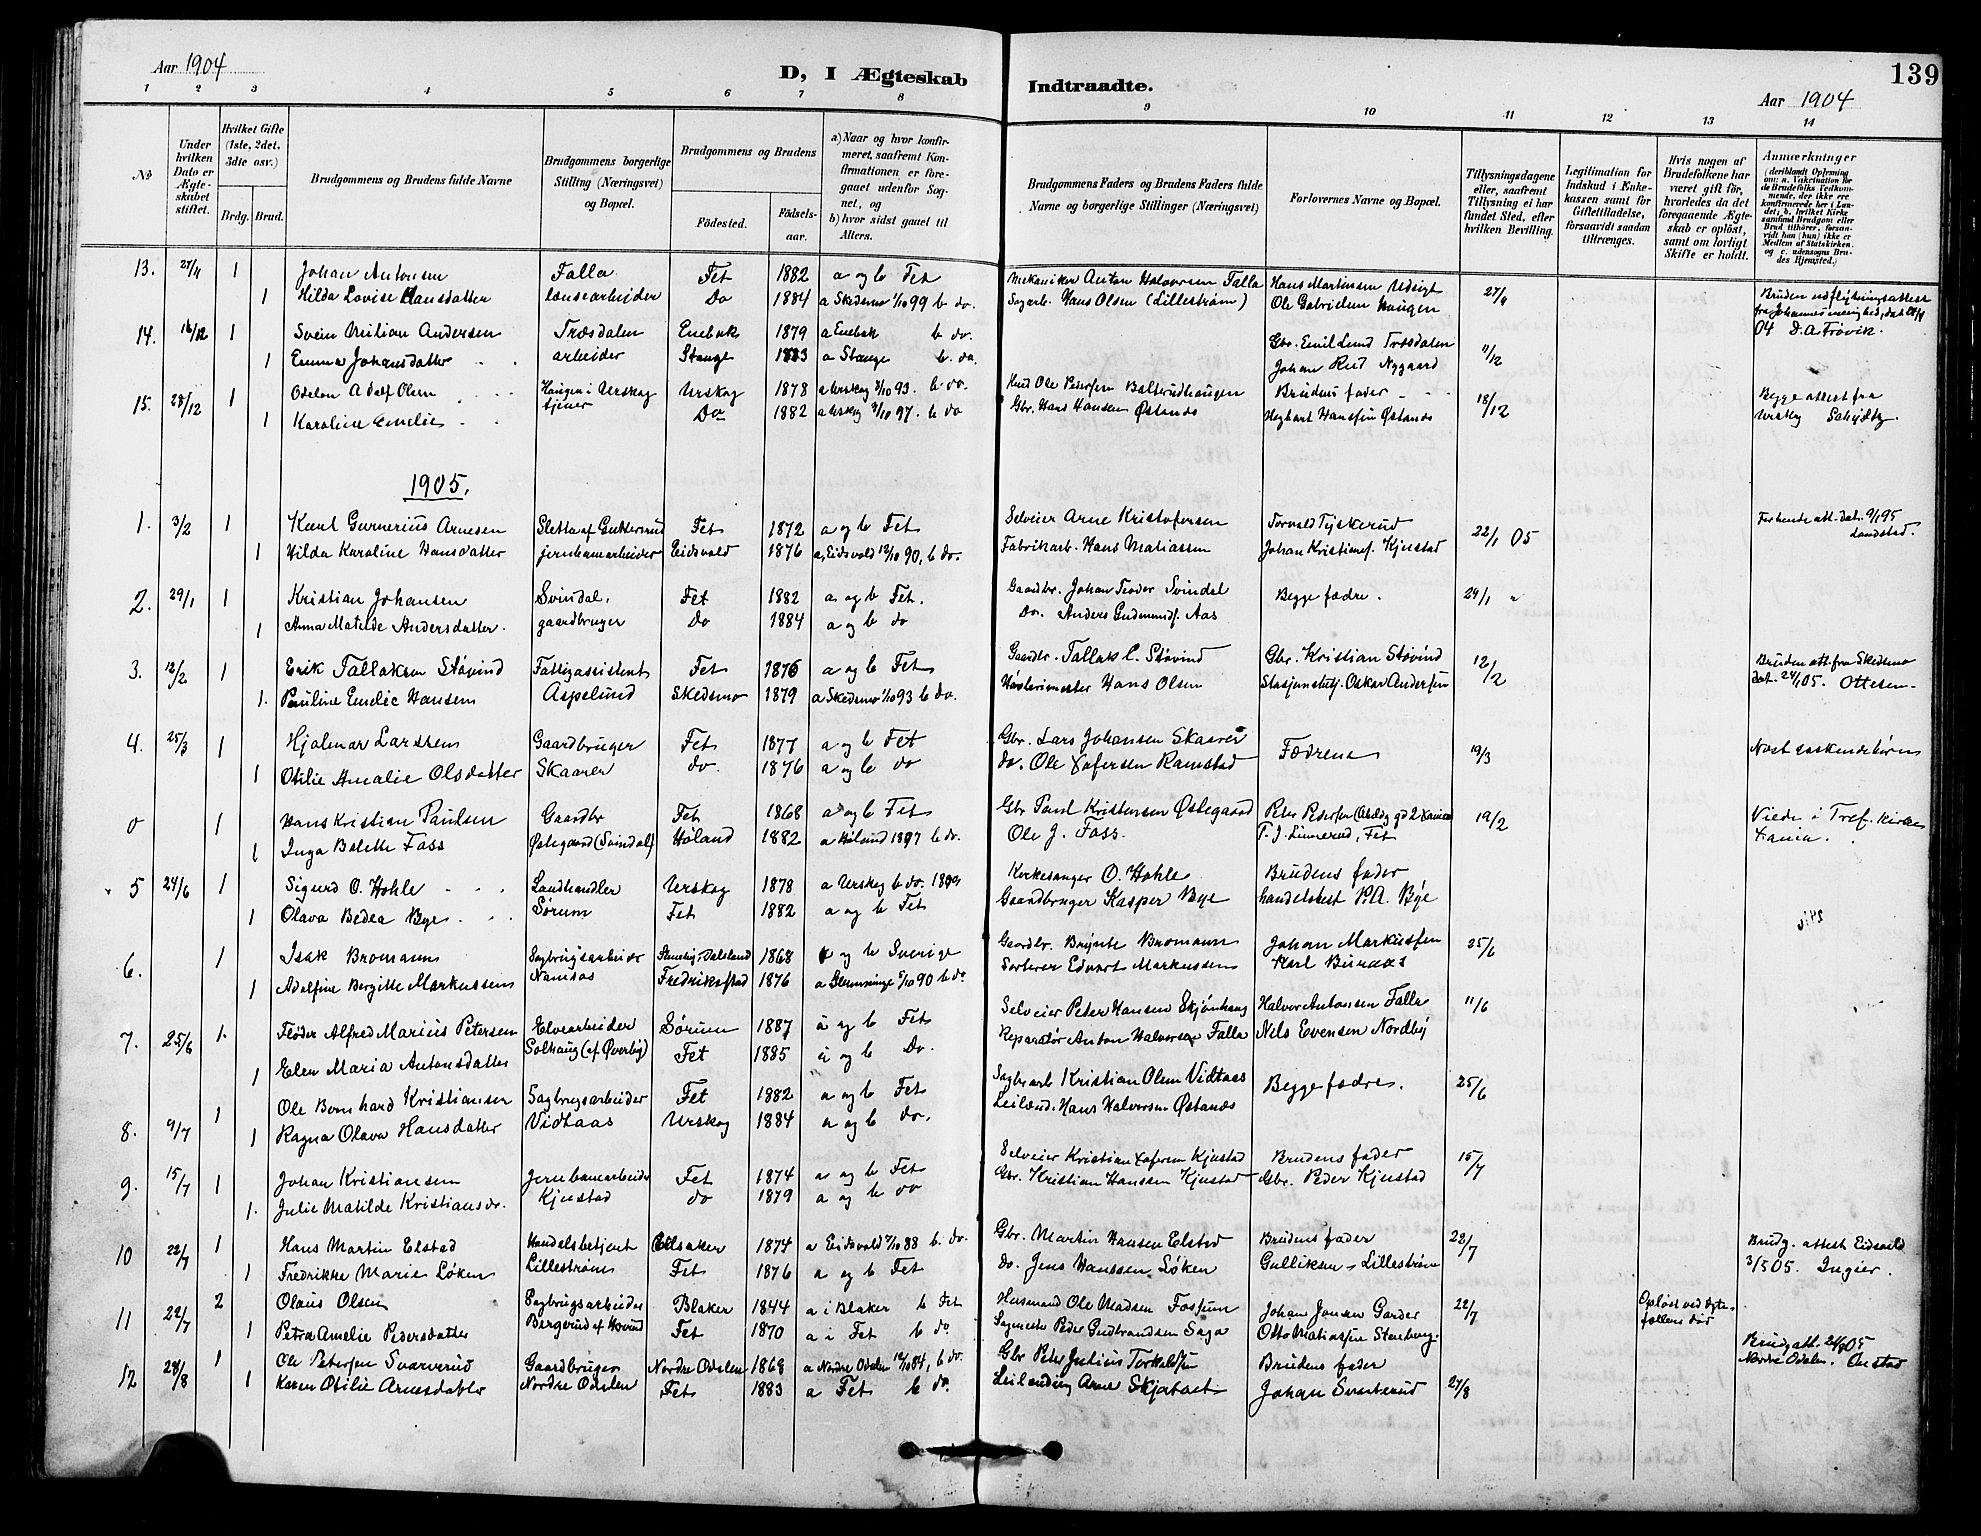 Aar 1904
D, I Ægteskab
Indtraadte.
139
Aar 1904
1 2 3 4 5 6 7 8 9 10 11 12 13 14
No
Under hvilken Dato er Ægteskabet stiftet.
Hvilket Gifte (1ste, 2det, 3die osv.)
Brdg. Brud.
Brudgommens og Brudens fulde Navne
Brudgommens borgerlige Stilling (Næringsvei) og Bopæl.
Brudgommens og Brudens
Födested.
Födselsaar.
a) Naar og hvor konfirmeret, saafremt Konfirmationen er foregaaet udenfor Sognet, og
b) hvor sidst gaaet til Alters.
Brudgommens Faders og Brudens Faders fulde Navne og borgerlige Stillinger (Næringsvei)
Forlovernes Navne og Bopæl.
Tillysningsdagene eller, saafremt Tillysning ei har fundet Sted, efter hvilken Bevilling.
Legitimation for Indskud i Enkekassen samt for Giftetilladelse, forsaavidt saadan tiltrænges.
Hvis nogen af Brudefolkene har været gift för, hvorledes da det foregaaende Ægteskab er oplöst, samt om lovligt Skifte er holdt.
Anmærkninger
13. 27/4 1 Johan Antonsen Falla Fet 1882 a og b Fet Mekaniker Anton Halvorsen Falla Hans Martinsen 27/4
1 Hilda Lovise Hansdatter lænsearbeider Do 1884 a Skedsmo 1/10 99 b do. Sagarb. Hans Olsen (Lillestrøm) Ole Gabrielsen Haugen
Bruden udflytningsattest
14. 16/12 1 Svein Milian Andersen Træsdalen Enebak 1879 a Enebak b do. Gbr. Emil Lund Træsdalen 11/12
04 D. A. Frøvik.
1 Emma Johansdatter arbeider Stange 1883 a Stange b. do. Johan Rud Nygaard
15. 28/12 1 Odelon Adolf Olsen Haugen i Urskog Urskog 1878 a Urskog 93. b do. Ole Pedersen Balterudhaugen Brudens fader 18/12 Begge attest fra
1 Karoline Emelie tjener Do 1882 a Urskog 97. b do Gbr. Hans Hansen Østanes Hansen Østanes Urskog
1905.
1. 3/2 1 Karl Gunerius Arnesen Sletta af Guttersrud Fet 1872 a og b Fet Selveier Arne Kristofersen Torvald Tyskerud 22/1 05
1 Hilda Karoline Hansdatter jernbanearbeider Eidsvold 1876 a, Eidsvold 12/10 90, b do. Fabrikarb. Hans Matiassen Johan Kristiansf. Kjustad Landstad.
2. 29/1 1 Kristian Johansen Svindal, Fet 1882 a og b Fet. Gaardbr. Johan Teodor Svindal Begge fædre. 24/1
1 Anna Matilde Andersdatter. gaardbruger Do 1884 a og b do Do. Anders Gudmunds. Aas
3. 12/2 1 Erik Tallaksen Støvind Fattigassistent Fet 1876 a og b Fet Gaardbr. Tallak C. Støvind Gbr. Kristian Støvind 12/2 Bruden att. fra Skedsmo
1. Pauline Emelie Hansen Aspelund Skedsmo 1879 a Skedsmo 1/10 93 b do. Hans Olsen Oskar Andersen dat. 24/1 05. Ottesen
4. 25/3 1 Hjalmar Larssen Gaardbruger Fet 1877 a og b Fet Gbr. Lars Johansen Skaarer Fædrene 19/3 søskendebørn
1 Otilie Amalie Olsdatter Skaarer do. 1876 a og b do do. Ole Xofersen Ramstad
0 1 Hans Kristian Paulsen Gaardbr Fet 1868 a og b Fet Gbr Paul Kristensen Østegaard Peter Pedersen 19/2 Viede i Tref. kirke
1 Inga Bolette Foss Østegaard (Svindal) Høland 1882 a Høland 1897 b do. Ole J. Foss. T. J. Linnerud, Fet Xania.
5 24/6 1 Sigurd O. Hohle Landhandler Urskog 1878 a Urskog b do. 1899 Kirkesanger O. Hohle Brudens fader
1 Olava Bedea Bye Sørum Fet 1882 a og b Fet Gaardbruger Kasper Bye handelsbest P.A. Bye
6. 1 Isak Bromann Sagbrugsarbeider Dalsland 1868 a og b Sverige Gaardbr. Brynte Bromann Johan Markussen 25/6
1 Adolfine Bergitte Markussen Namsos Fredriksstad 1876 a Glemminge 5/10 90 b do Sorterer Edvart Markussen Karl Buraas
7. 25/6 1. Fløder Alfred Marius Petersen Elvearbeider Sørum 1887 a og b Fet Selveier Peter Hansen Skjønhaug Halvor Antonsen Falla 11/6
1 Elen Maria Antonsdatter Solhaug (af Øverby) Fet 1885 a og b Do. Reparatør Anton Halvorsen Falla Nels Evensen Nordby
8. 9/7 1 Ole Bernhard Kristiansen Sagbrugsarbeider Fet 1882 a og b Fet Sagbr.arb Kristian Olsen Vidtaas Begge fædre. 25/6
1 Ragna Olava Hansdatter Vidtaas Urskog 1884 a og b do. Leilend. Hans Halvorsen Østanes
9. 15/7 1 Johan Kristiansen Jernbanearbeider Fet 1874 a og b Fet Selveier Kristian Xofersen Kjustad Brudens fader 15/7
1. Julie Matilde Kristiansdr. Kjustad do 1879 a og b do Gbr. Kristian Hanssen Kjustad Gbr. Peder Kjustad
10 22/7 1 Hans Martin Elstad Handelsbetjent Ullsaker 1874 a Eidsvold 7/10 88 b. do. Gbr. Martin Hansen Elstad Brudens fader 23/7 Brudg. attest Eidsvold
1 Fredrikke Marie Løken Lillestrøm Fet 1876 a og b Fet do. Jens Hanssen Løken Gulliksen, Lillestrøm 3/5 05. Ingier.
11 22/7 2 Olaus Olsen Sagbrugsarbeider Blaker 1844 a i Blaker b Fet Husmand Ole Madsen Fossum Johan Jonsen Garder 22/7 Opløst ved ægtefællens død
1 Petra Amelie Pedersdatter Bergerud af Hovind Fet 1870 a i Fet b do Sagmester Peder Gudbrandsen Saga Otto Matiassen Stenberg
12 28/8 1 Ole Petersen Svarverud Gaardbruger Nordre Odalen 1868 a Nordre Odalen 12/10 84, b do. Gbr Peter Julius Torkelssen Brudens fader 27/8 Brudg att. 24/8 05
1 Karen Otilie Arnesdatter Nordre Odalen Fet 1883 a Fet b do. Leilending Arne Skjatvet Johan Svarterud Nordre Odalen. Onstad